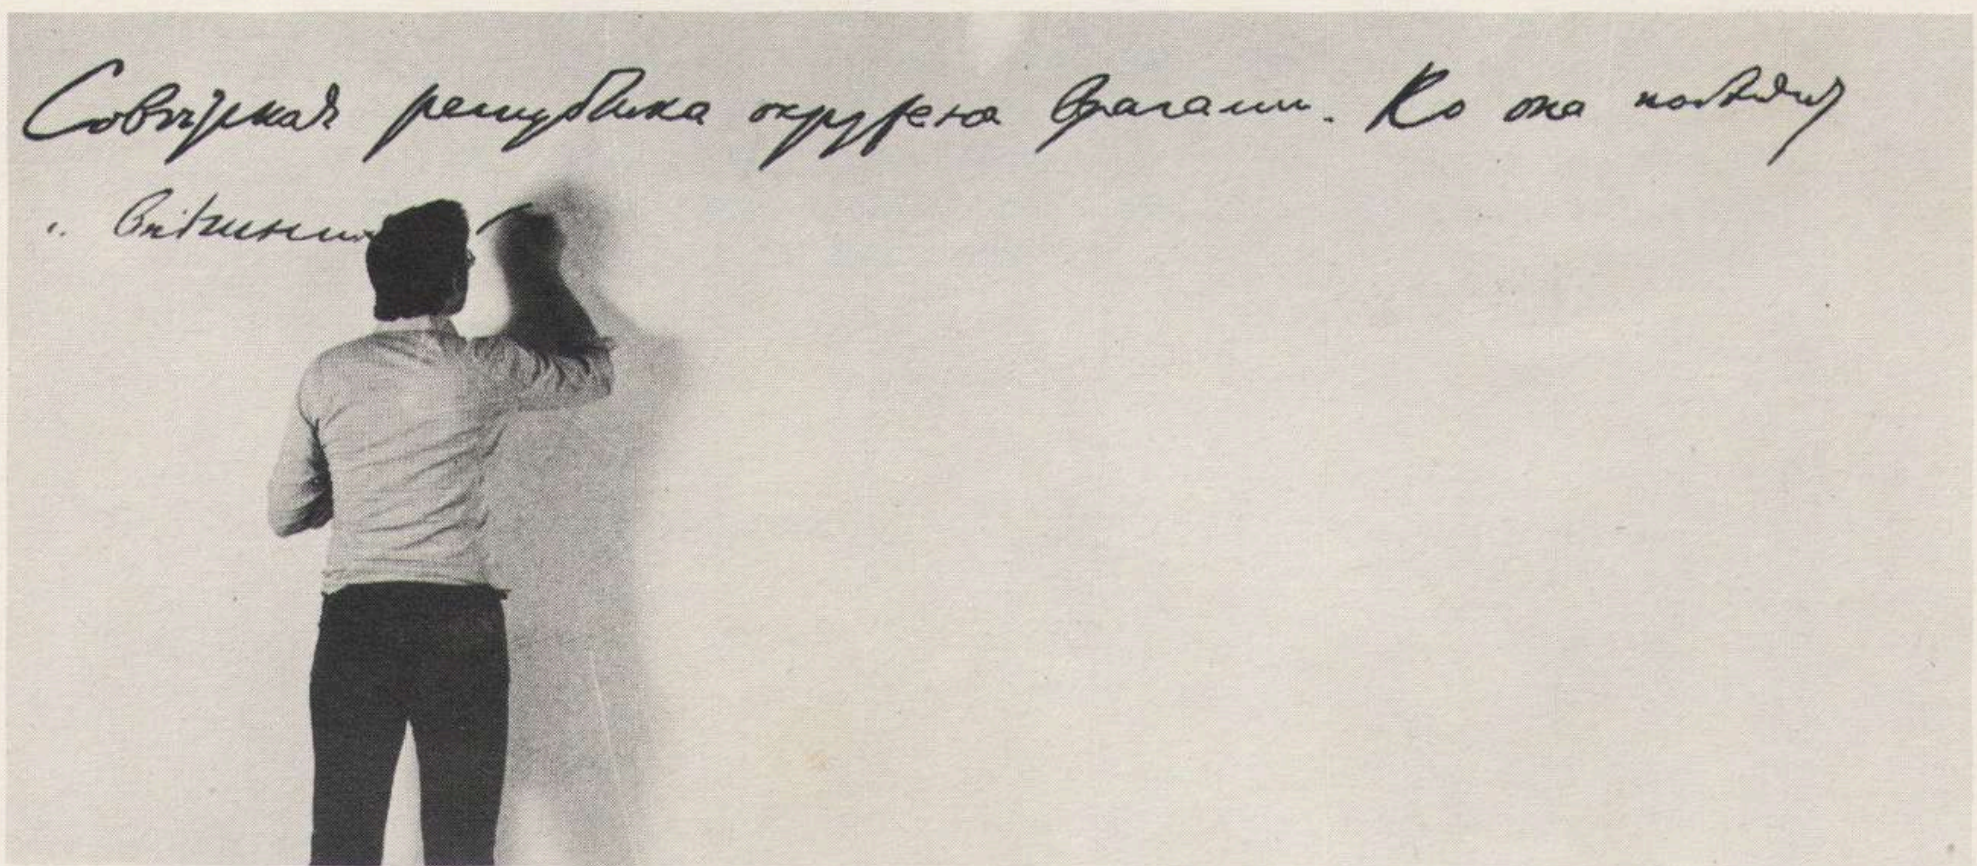 Советская республика окружена врагами. Но она победит
и внешних